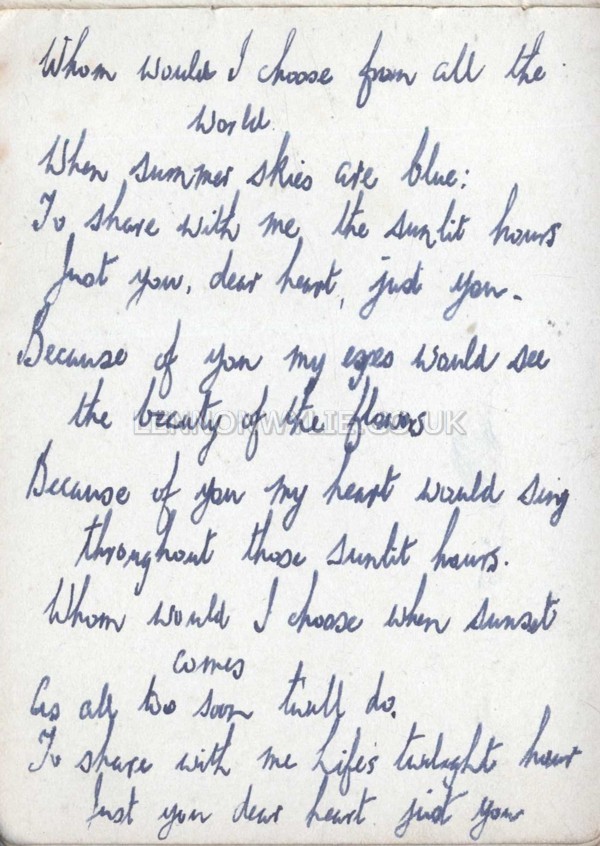 Whom would I choose from all the
world
When summer skies are blue:
To share with me, the sunlit hours
Just you, dear heart, just you.
Because of you my eyes would see
the beauty of the flowers
LENNONWYLIE.CO.UK
Because of you my heart would sing
throughout those sunlit hours.
Whom would I choose when sunset
comes
As all too soon twill do.
To share with me Life's twilight hour
Just you dear heart just you